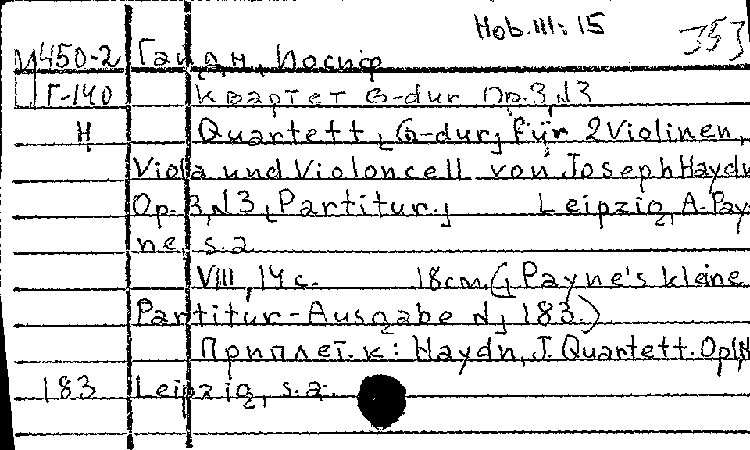 Hob.III:15
353
М450-2 Гайдн, Иосиф
Г-140 Квартет G-dur Op.3, N3
H Quartett [G-dur] für 2 Violinen,
Viola und Violoncell von Joseph Haydn
Op. 3, N3 [Partitur.] Leipzig, A. Pay-
ne, s.a.
VIII, 14 с. 18 cm. ([Payne's kleine
Partitur-Ausgabe N] 183.)
Приплет. к: Haydn, J. Quartett. Op
183 Leipzig, s.a.